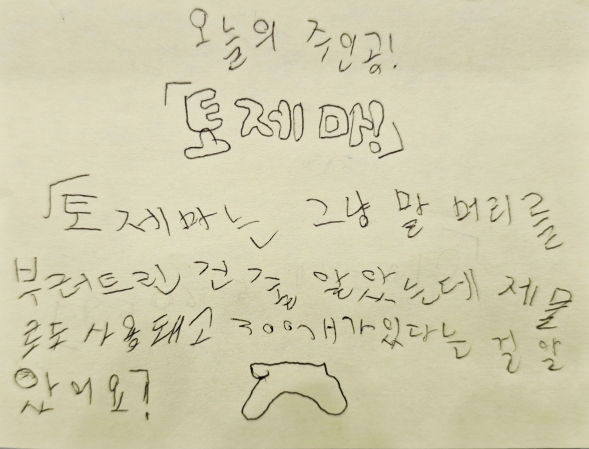 오늘의 주인공!
「토제마!」
「토제마는 그냥 말 머리를
부러트린 건 줄 알았는데 제물
로도 사용돼고 300개가있다는 걸 알
았어요?